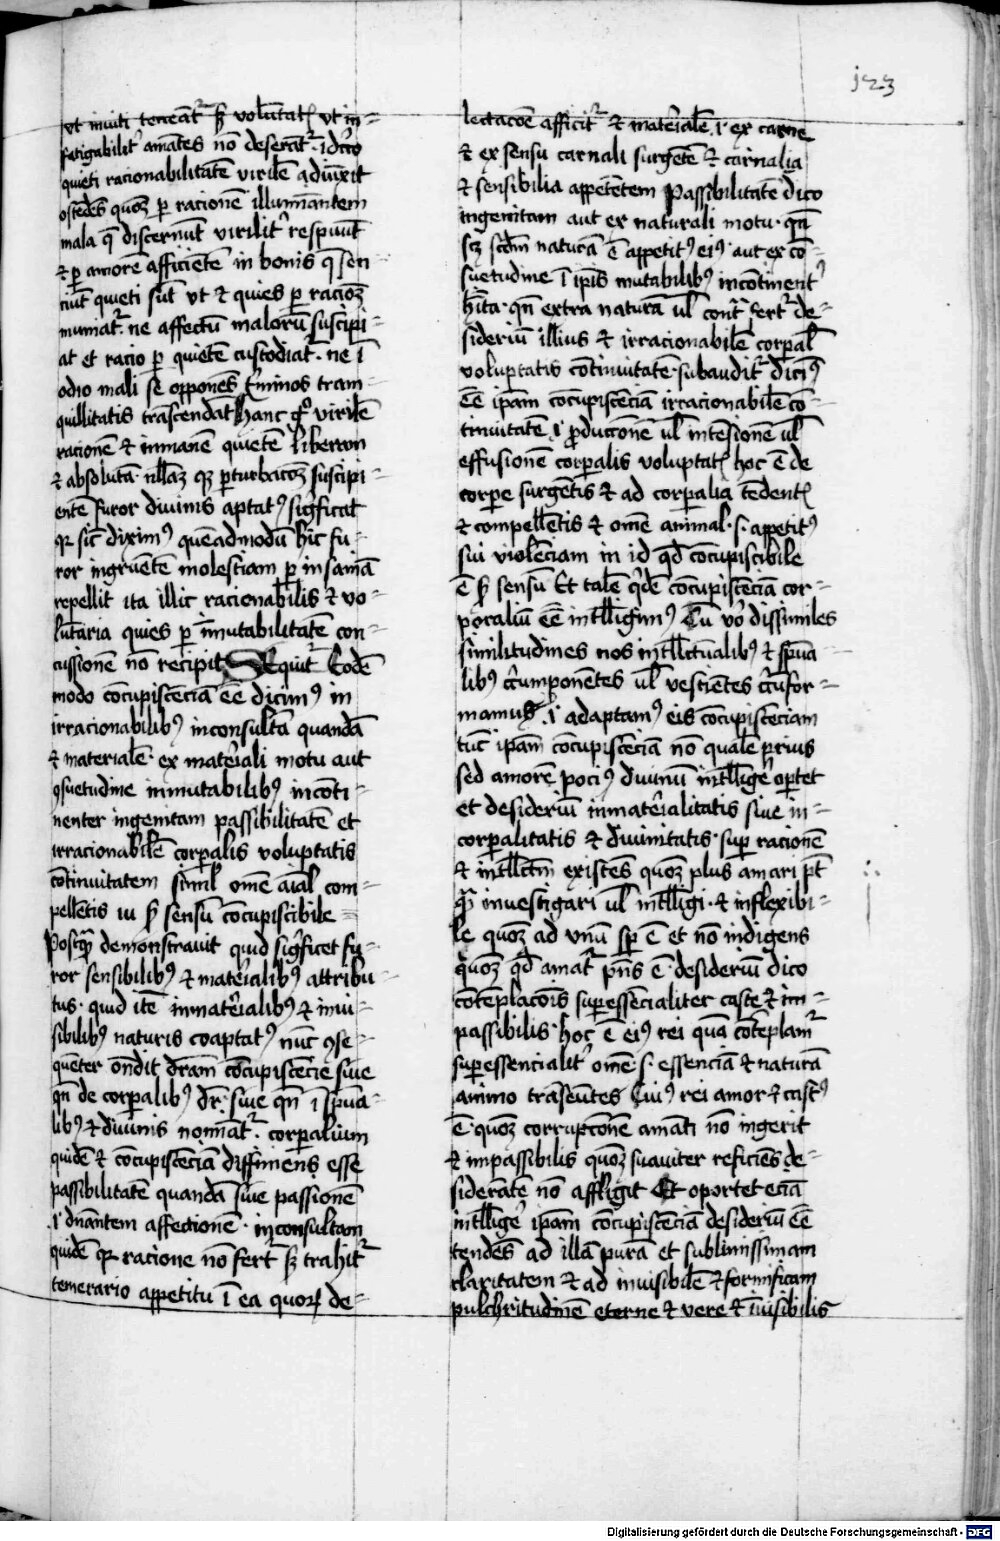 123
ut inviti teneāt᷑ s voluntat ut in=
fatigabilit᷑ amātes nō deserāt᷑ · id᷑o
quieti racionabilitatē virilē adiūxit
ostēdēs quoꝫ ꝑ racionē illumināntem
mala q̄ discernūt virilit᷑ respuūt
⁊ ꝑ amorē afficiētē in bonis q̄ sen
ciūt quieti sūt ut ⁊ quies ꝑ racioꝫ
muniat᷑ ne affectū malorū suscipi=
at et racio ꝑ quietē custodiat᷑ · ne ī
odio mali se opponēs t᷑minos tran=
quillitatis trāscendāt Hanc g᷑ virilē
racionē ⁊ inmanē quietē liberam
⁊ absolutā · nllāꝫ perturbacōꝫ suscipi=
entē furor divinis aptatꝰ sig᷑ficat
q᷑ sic᷑ diximꝰ quēadmodū hic fu=
ror ingruentē molestiam ꝑ insaniā
repellit ita illic racionabilis ⁊ vo=
lūtaria quies ꝑ īmutabilitatē con=
cussionē nō recipit Sequit᷑ Eodē
modo cōcupiscēciā eē dicimꝰ in
irracionabilibꝰ inconsultā quandā
⁊ materialē · ex māteriali motu aut
ꝯsuetudine inmutabilibꝰ incōti=
nenter ingenitam passibilitatē et
irracionabilē corꝑalis voluptatis
cōtinuitatem simil omē aīal com=
pellētis in s sensū cōcupiscibile =
Postq̄ demōnstravit quid sig᷑ficet fu=
ror sensibilibꝰ ⁊ māterialibꝰ attribu=
tus · quid itē inmāterialibꝰ ⁊ invi=
sibilibꝰ naturis coaptatꝰ nūc ꝯse=
quēter ondit dr̄am cōcupiscēcie sive
qn̄ de corꝑalibꝰ dr᷑ · sive qn̄ ī spūa=
libꝰ ⁊ divinis nominat᷑ · corꝑalium
quidē ⁊ cōcupiscēciā diffiniens esse
passibilitatē quandā sive passionē
.i. dn̄antem affectionē · inconsultam
quidē q᷑ racione nō fert᷑ s trahit᷑
temerario appetitu ī ea quoꝝ de=
lectacōe afficit᷑ ⁊ māterialē .i. ex carne
⁊ ex sensu carnali surgētē ⁊ carnalia
⁊ sensibilia appetētem passibilitatē dico
ingenitam aut ex naturali motu · qn̄
scꝫ scdm naturā ē appetitꝰ eiꝰ · aut ex cō=
suetudine ī ipīs mutabilibꝰ incōtinent᷑
hīta · qn̄ extra naturā ul contr̄ fert᷑ de=
siderīu illius ⁊ irracionabilē corꝑal
voluptatis cōtinuitatē · subaudit᷑ dicimꝰ
eē ipām cōcupiscēciā irracionabilē cō=
tinuitatē .i. ꝓductionē ul intēsionē ul
effusionē corꝑalis voluptat hoc ē de
corꝑe surgētis ⁊ ad corꝑalia tēdent
⁊ compellētis ⁊ omē animal · s · appetitꝰ
sui violēciam in id qd cōcupiscibile
ē s sensū Et talē q᷑dē cōcupiscēciā cor=
poraliū eē intlligimꝰ Cū v᷑o dissimiles
similitudines nos intllectualibꝰ ⁊ spūa=
libꝰ cūmponentes ul vestientes cūfor=
mamus .i. adaptamꝰ eis cōcupiscēciam
tūc ipām cōcupiscēciā nō qualē prius
sed amorē pociꝰ divinū intllige᷑ oꝑtet
et desideriū inmāterialitatis sive in=
corꝑalitatis ⁊ divinitatis · suꝑ racionē
⁊ intllctm existēs quoꝫ plus amari pt̄
q̄ investigari ul intlligi · ⁊ inflexibi=
le quoꝫ ad unū sꝑ ē et nō indigens
quoꝫ qd amat᷑ pn̄s ē · desideriū dico
cōtēplacōis suꝑessēcialiter caste ⁊ im=
passibilis · hoc ē eiꝰ rei quā cōteplam᷑
suꝑessencialit᷑ omē · s · essenciā ⁊ naturā
animo trāseūtes Cuiꝰ rei amor ⁊ castꝰ
ē · quoꝫ corrupcōnē amāti nō ingerit
⁊ impassibilis quoꝫ suaviter reficiēs de=
siderātē nō affligit Et oportet eciā
intllige᷑ ipām cōcupiscēciā desideriū eē
tendēs ad illā purā et sublimissimam
claritatem ⁊ ad invisibilē ⁊ formificam
pulchritudinē eterne ⁊ vere ⁊ īvisibilis
Digitalisierung gefördert durch die Deutsche Forschungsgemeinschaft - DFG